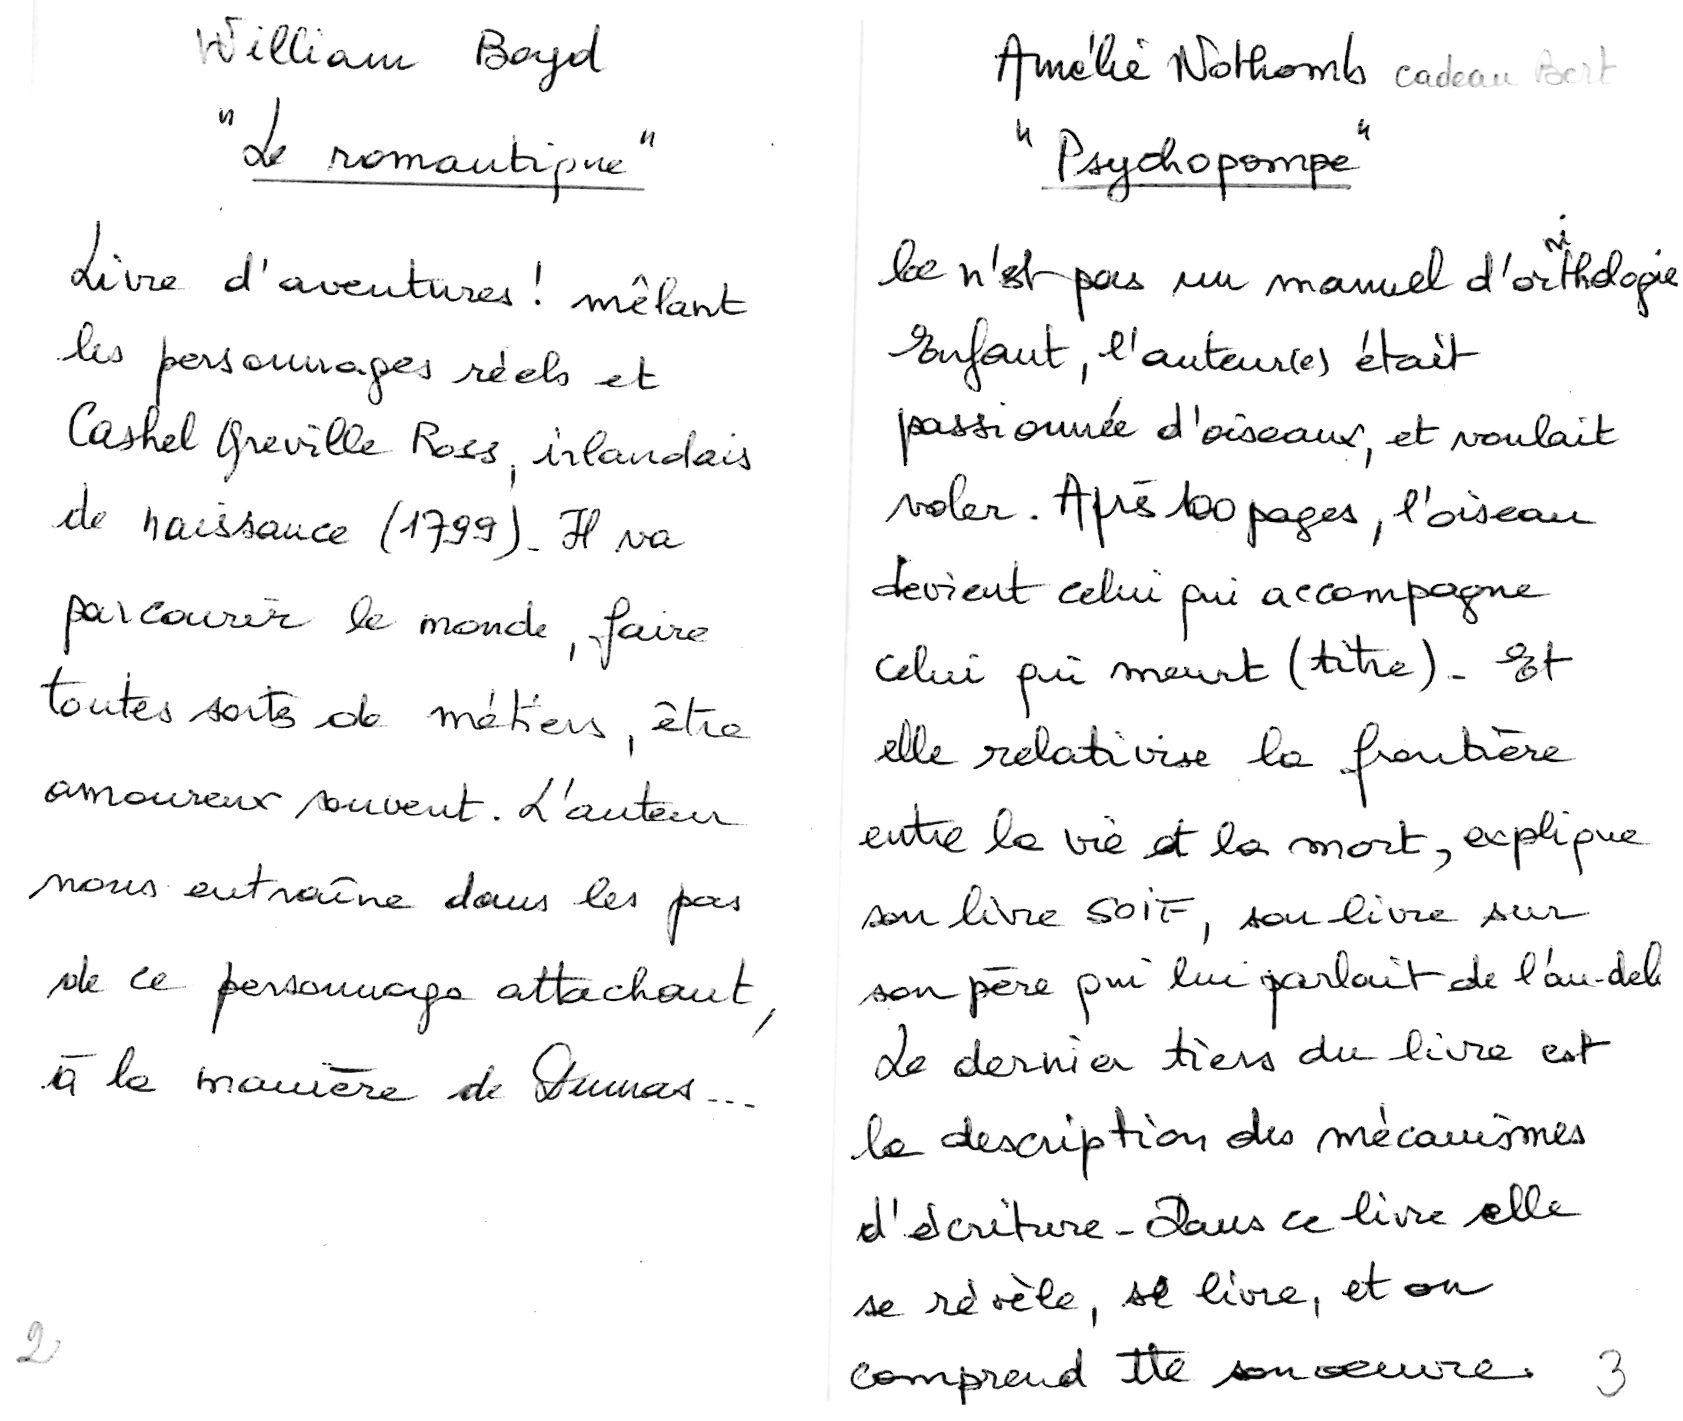 William Boyd
"Le romantique"
Livre d'aventures ! mêlant
les personnages réels et
Cashel Greville Ross, irlandais
de naissance (1799). Il va
parcourir le monde, faire
toutes sorts de métiers, être
amoureux souvent. L'auteur
nous entraîne dans les pas
de ce personnage attachant,
à la manière de Dumas...
2
Amélie Nothomb cadeau Bert
"Psychopompe"
Ce n'est pas un manuel d'ornithologie
Enfant, l'auteur(e) était
passionnée d'oiseaux, et voulait
voler. Après 100 pages, l'oiseau
devient celui qui accompagne
celui qui meurt (titre). Et
elle relativise la frontière
entre la vie et la mort, explique
son livre SOIF, son livre sur
son père qui lui parlait de l'au-delà
Le dernier tiers du livre est
la description des mécanismes
d'écriture - Dans ce livre elle
se révèle, se livre, et on
comprend tte son oeuvre.
3